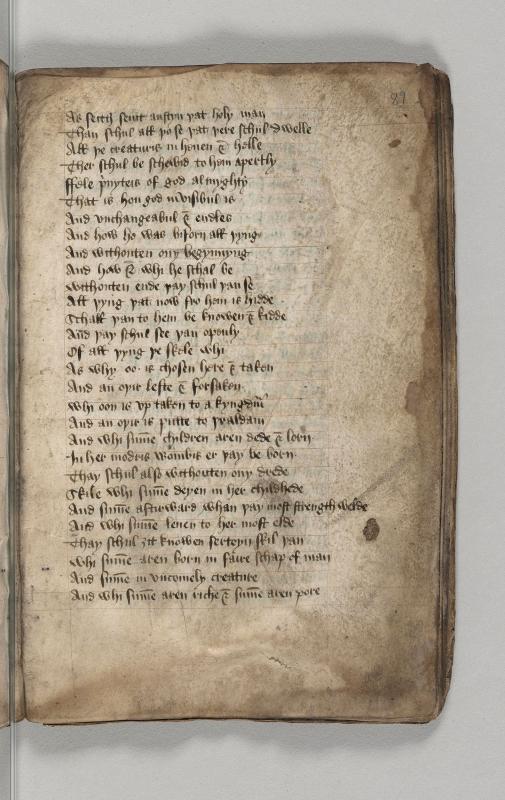 89
As seith seint austyn þat holy man
Than schul all þose þat þere schul dwelle
All þe creaturis in heuen & helle
Ther schul be schewid to hem apertly
ffele pryuyteis of god almighty
That is hou god inuisibul is
And unchangeabul & endles
And how he was biforn all þyng
And withouten ony begynnyng
And how & whi he schal be
withouten ende þay schul þan se
All þyng þat now fro hem is hidde
Schall þan to hem be knowen & kidde
And þay schul see þan openly
Of all þyng þe skele whi
As why oo is chosen here & taken
And an oþir lefte & forsaken
Whi oon is vp taken to a kyngdm̄
And an oþir is putte to þraldam
And whi sum̄e children aren dede & lorn
In her modris wombis er þay be born
Thay schul also withouten ony drede
Skile whi sum̄e deyen in her childhede
And sum̄e aftirward whan þay most strength welde
And whi sum̄e leuen to her most elde
Thay schul ȝit knowen serteyn skil þan
Whi sum̄e aren born in faire schap of man
And sum̄e in vncomely creature
And whi sum̄e aren riche & sum̄e aren pore